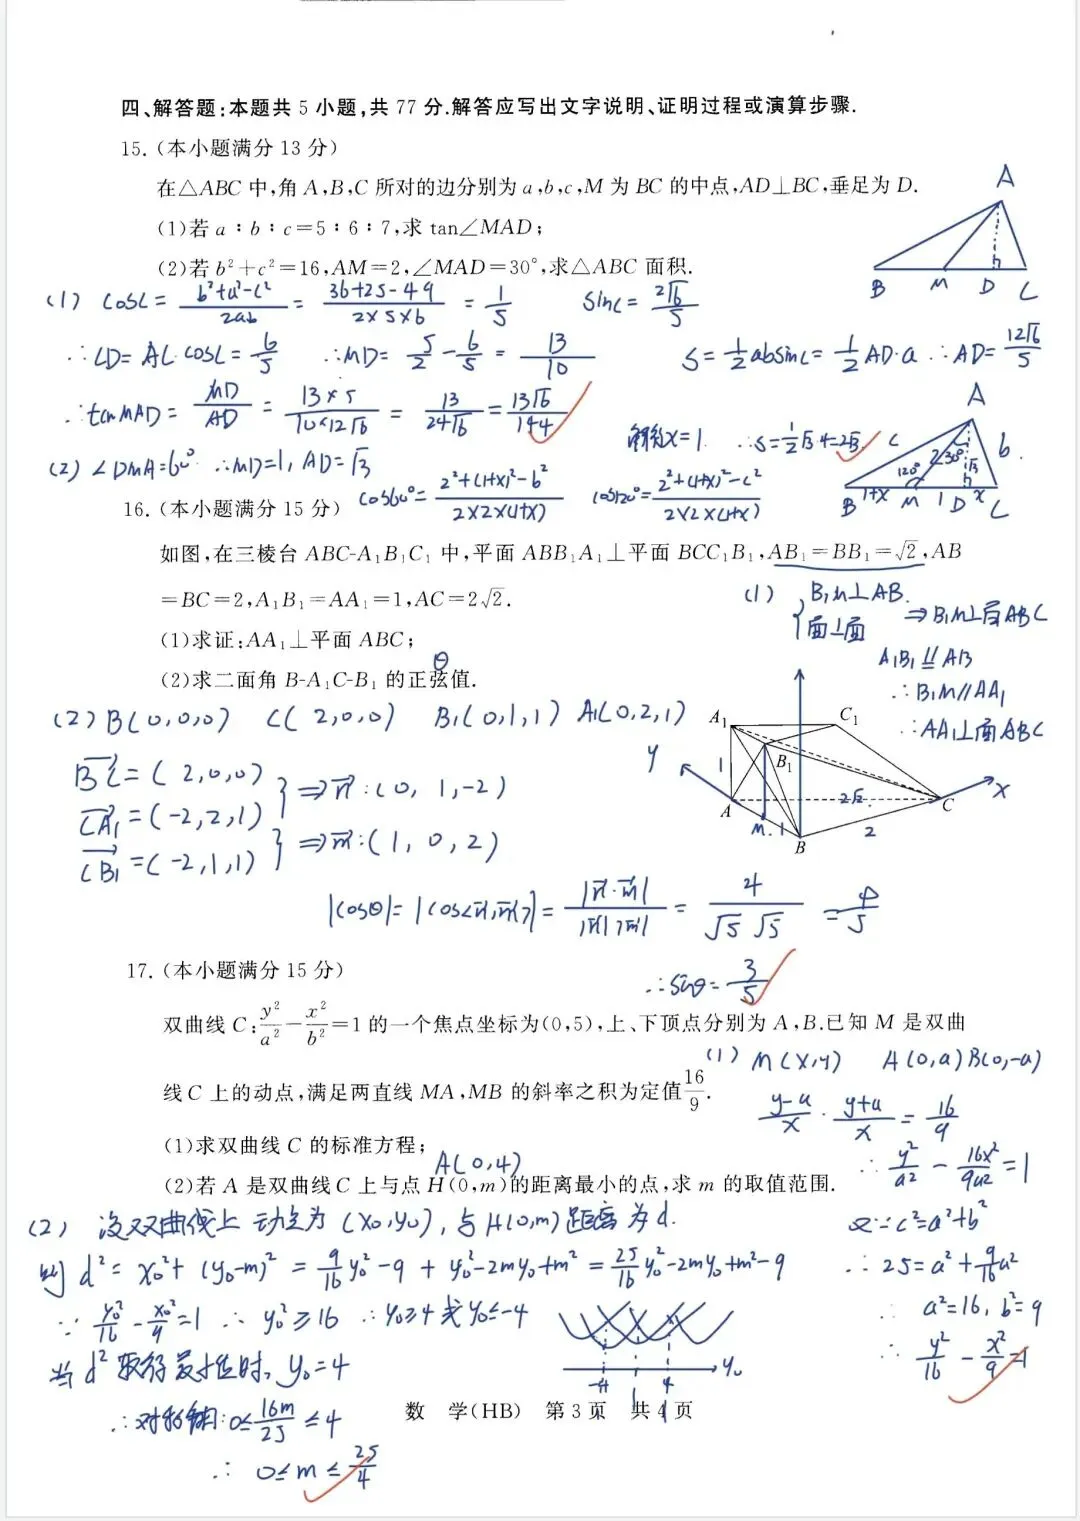 四、解答题:本题共 5 小题,共 77 分.解答应写出文字说明、证明过程或演算步骤.
15.(本小题满分 13 分)
在△ABC 中,角 A,B,C 所对的边分别为 a,b,c,M 为 BC 的中点,AD⊥BC,垂足为 D.
(1)若 a∶b∶c=5∶6∶7,求 tan∠MAD;
(2)若 b²+c²=16,AM=2,∠MAD=30°,求△ABC 面积.
A
B M D C
(1) cosC= (b²+a²-c²)/2ab = (36+25-49)/(2×5×6) = 1/5 sinC= 2√6/5
∴CD=AC·cosC= 6/5 ∴MD= 5/2 - 6/5 = 13/10 S=1/2absinC=1/2AD·a ∴AD=12√6/5
∴tanMAD= MD/AD = (13×5)/(10×12√6) = 13/(24√6) = 13√6/144
解得x=1 ∴S=1/2·√3·4=2√3
(2) ∠DMA=60° ∴MD=1, AD=√3 cos60°= (2²+(1+x)²-b²)/(2×2×(1+x)) cos120°= (2²+(1+x)²-c²)/(2×2×(1+x))
A
c 2 30° √3 b
120°
B 1+x M 1 D x C
16.(本小题满分 15 分)
如图,在三棱台 ABC-A₁B₁C₁ 中,平面 ABB₁A₁⊥平面 BCC₁B₁,AB₁=BB₁=√2,AB
=BC=2,A₁B₁=AA₁=1,AC=2√2.
(1)求证:AA₁⊥平面 ABC;
(2)求二面角 B-A₁C-B₁ 的正弦值.
θ
(1) {B₁M⊥AB. 面⊥面 ⇒B₁M⊥面ABC
A₁B₁∥AB
∴B₁M∥AA₁
∴AA₁⊥面ABC
(2) B(0,0,0) C(2,0,0) B₁(0,1,1) A₁(0,2,1)
BC=(2,0,0)
CA₁=(-2,2,1) ⇒n:(0,1,-2)
CB₁=(-2,1,1) ⇒m:(1,0,2)
A₁ C₁
B₁
y 1
A 2√2 C x
M 1 2
B
|cosθ|=|cos<n,m>|= |n·m|/(|n||m|) = 4/(√5 √5) = 4/5
∴sinθ= 3/5
17.(本小题满分 15 分)
双曲线 C:y²/a²-x²/b²=1 的一个焦点坐标为(0,5),上、下顶点分别为 A,B.已知 M 是双曲
线 C 上的动点,满足两直线 MA,MB 的斜率之积为定值16/9.
(1)求双曲线 C 的标准方程;
A(0,4)
(2)若 A 是双曲线 C 上与点 H(0,m)的距离最小的点,求 m 的取值范围.
(1) M(x,y) A(0,a) B(0,-a)
(y-a)/x · (y+a)/x = 16/9
∴ y²/a² - 16x²/9a² =1
又∵c²=a²+b²
∴ 25=a²+9/16a²
a²=16, b²=9
∴ y²/16 - x²/9 =1
(2) 设双曲线上动点为(x₀,y₀),与H(0,m)距离为d.
则d²=x₀²+(y₀-m)² = 9/16y₀²-9+y₀²-2my₀+m² = 25/16y₀²-2my₀+m²-9
∵ y₀²/16 - x₀²/9 =1 ∴ y₀²≥16 ∴y₀≥4或y₀≤-4
当d²取得最小值时, y₀=4
-4 4 y₀
∴对称轴:0≤16m/25≤4
∴ 0≤m≤25/4
数 学(HB) 第 3 页 共 4 页